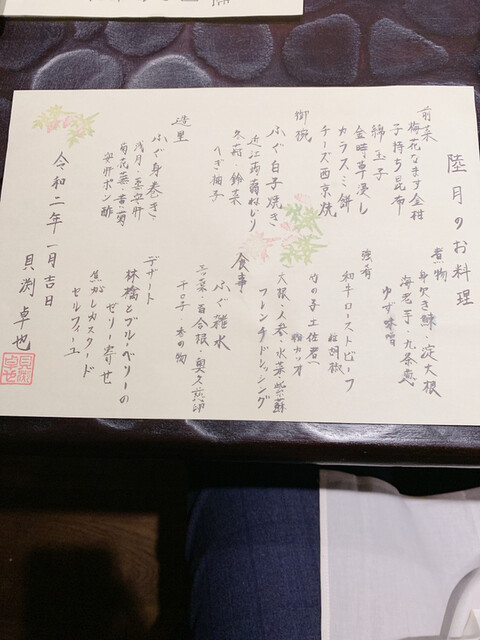 陸月のお料理
前菜
梅花なます金村
子持ち昆布
綿玉子
金時草浸し
カラスミ餅
チーズ西京焼
御椀
ふぐ白子焼き
近江蕪・蕪ねじり
冬菇・雑菜
へぎ柚子
造里
ふぐ身巻き
浅月・茎安肝
菊花蕪・青菊
安肝ポン酢
煮物
身欠き鰊・淀大根
海老芋・九条葱
ゆず味噌
強肴
和牛ローストビーフ
粒胡椒
竹の子土佐煮
粉カツオ
大根・人参・水菜・紫蘇
フレンチドレッシング
食事
ふぐ雑水
百合根・奥久慈卵
干口子
香の物
デザート
林檎とブルーベリーの
ゼリー寄せ
焦がしカスタード
セルフィーユ
令和二年一月吉日
貝渕卓也